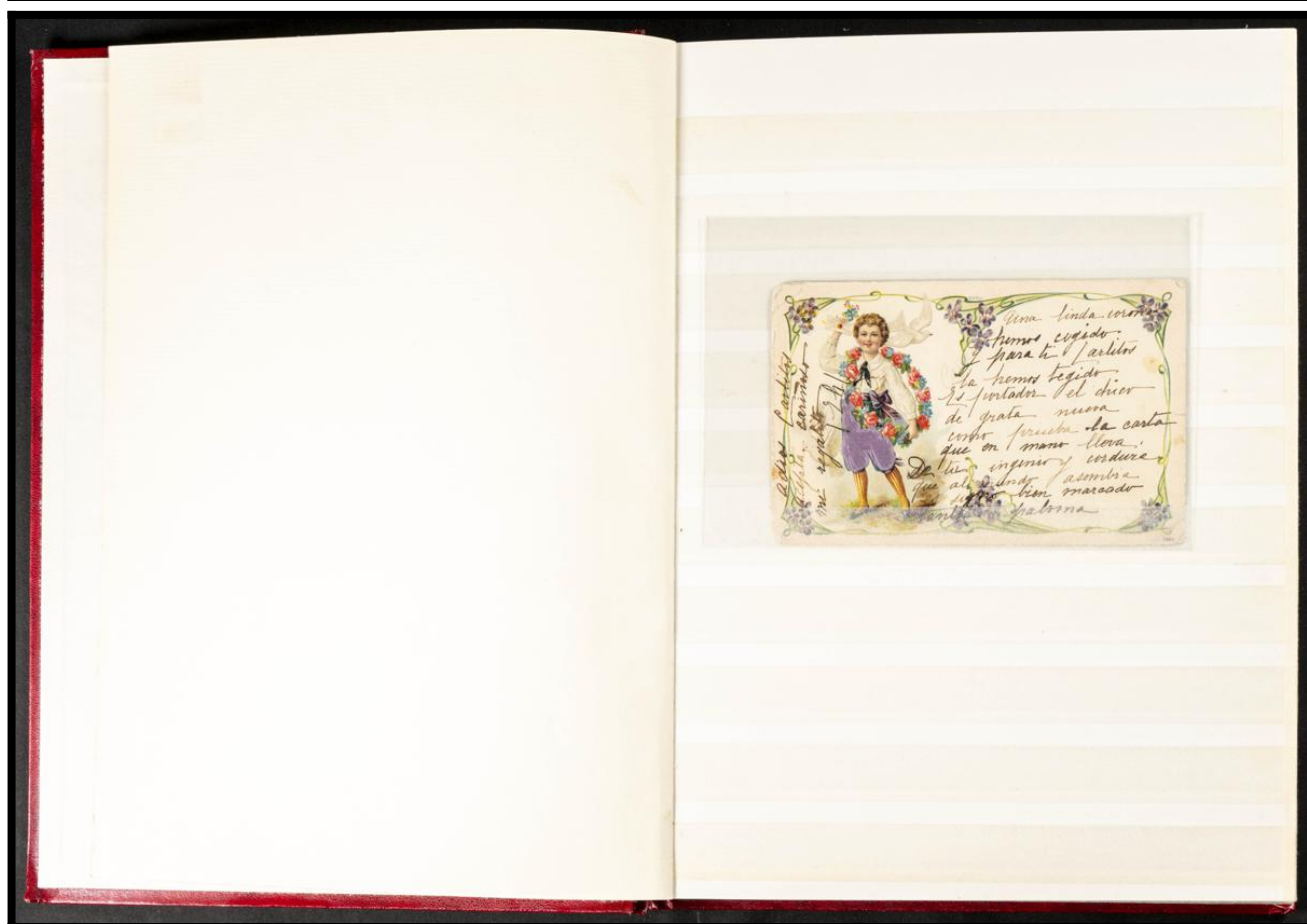 Una linda corona
hemos cogido
y para ti Carlitos
la hemos tegido
Es portador el chico
de grata nueva
como prueba la carta
que en mano lleva.
De tu ingenio y cordura
que al mundo asombra
signo bien marcado
paloma
adios Carlitos
cariñoso
mi regalito